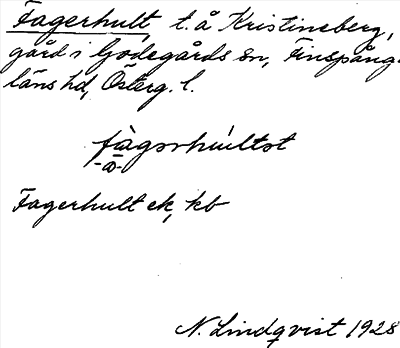 Fagerhult, t. å Kristineberg,
gård i Godegårds sn, Finspång-
läns hd, Österg. l.
fàgərhúltst
-ā-
Fagerhult ek, kb
N. Lindqvist 1928